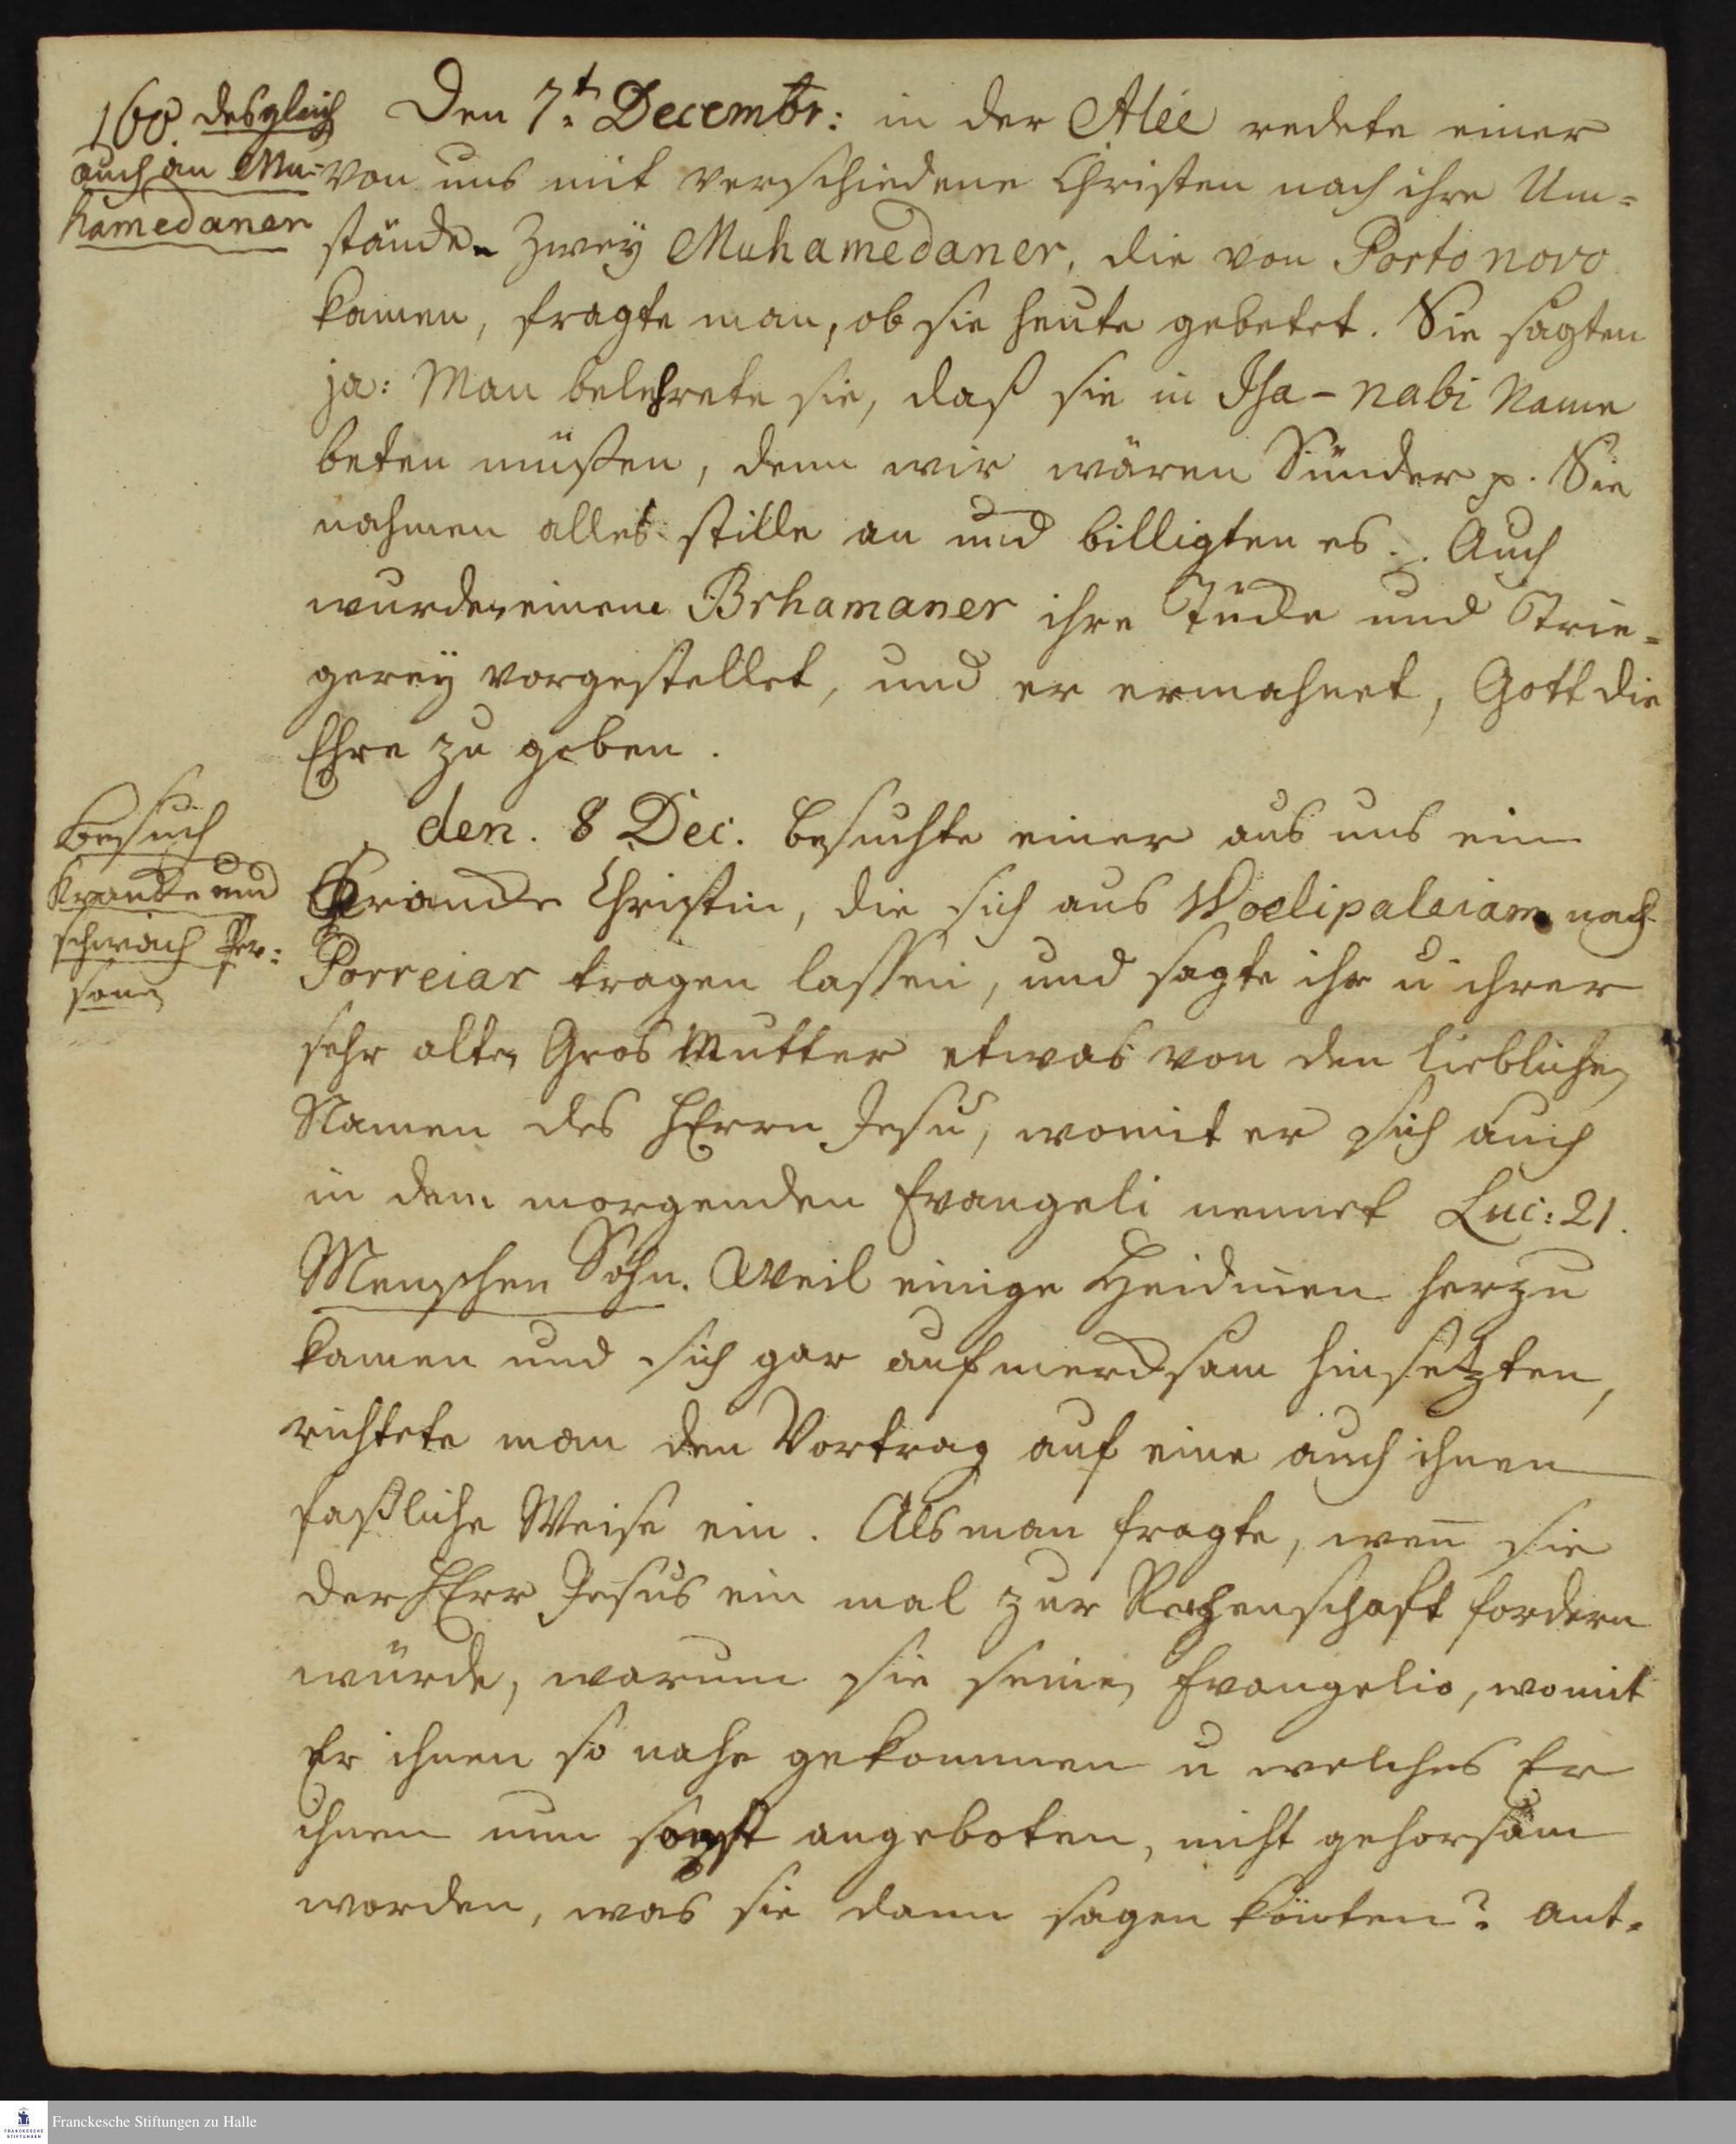 160. desgleich
auch an Mu-
hamedaner
Den 7t. Decembr: in der Aleé redete einer
von uns mit verschiedene Christen nach ihre Um-
stände. Zwey Muhamedaner, die von Porto novo
kamen, fragte man, ob sie heute gebetet. Sie sagten
ja: Man belehrete sie, daß sie in Isa-nabi Name
beten müßen, denn wir wären Sünder p. Sie
nahmen alles stille an und billigten es. Auch
wurde einem Brhamaner ihre und Trie-
gerey vorgestellet, und er ermahnet, Gott die
Ehre zu geben.
Besuch
Krancke und
schwach Per-
sonen
den. 8 Dec. besuchte einer aus uns ein
Krancke Christin, die sich aus Woelipaleiam nach
Porreiar tragen lassen, und sagte ihr u ihrer
sehr alten Gros Mutter etwas von den lieblichen
Namen des HErrn Jesu, womit er sich auch
in dem morgenden Evangeli nennet Luc: 21.
Menschen Sohn. Weil einige Heidinnen herzu
kamen und sich gar aufmercksam hinsetzten,
richtete man den Vortrag auf eine auch ihnen
faßliche Weise ein. Als man fragte, wen̄ sie
der HErr Jesus ein mal zur Rechenschaft fordern
würde, warum sie seinen Evangelio, womit
Er ihnen so nahe gekommen u welches Er
ihnen nun angeboten, nicht gehorsam
worden, was sie dann sagen könten? Ant-
Franckesche Stiftungen zu Halle
FRANCKESCHE
STIFTUNGEN